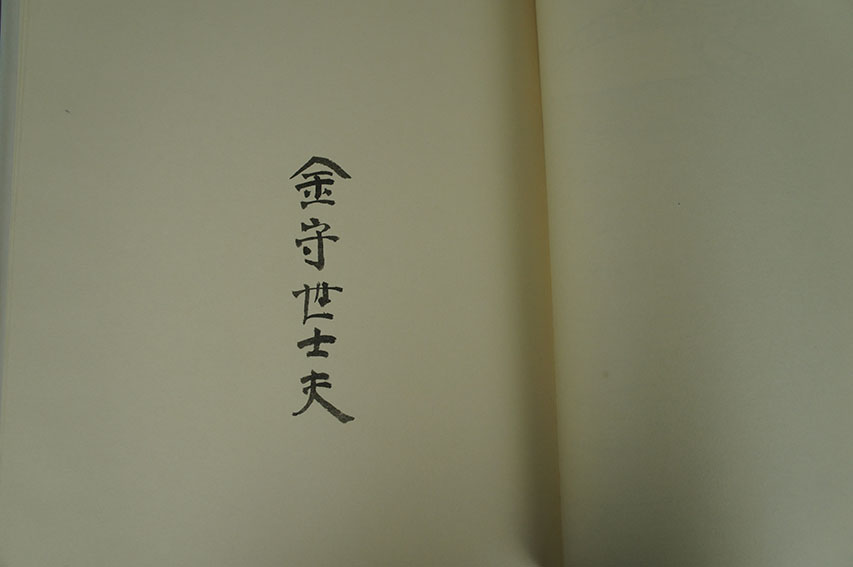 金守世士夫